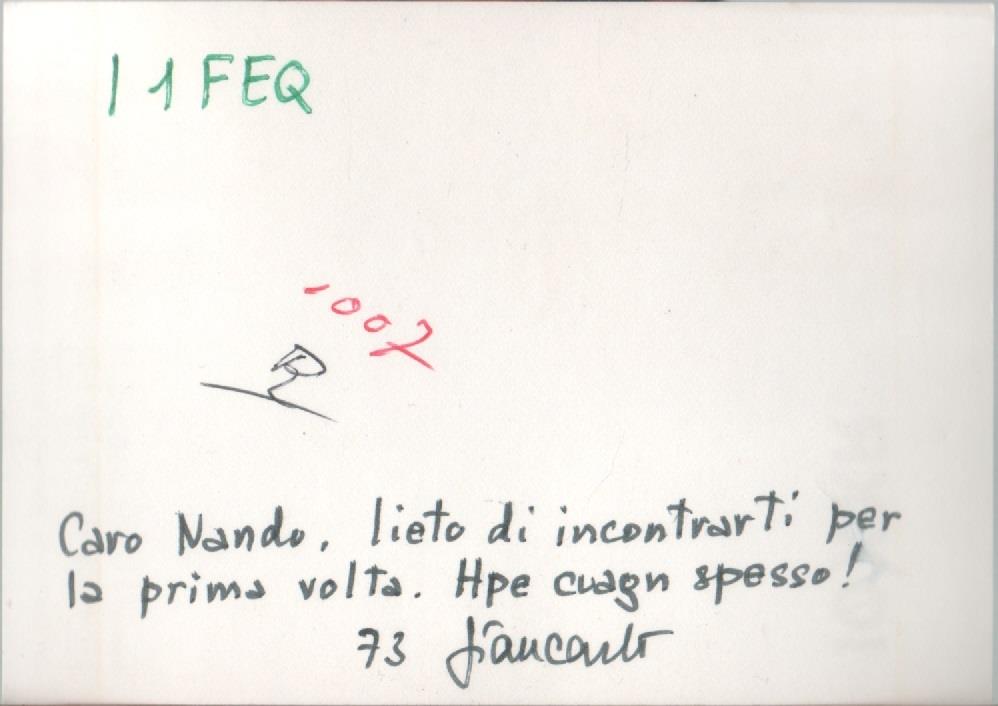 I1FEQ
1002
Caro Nando, lieto di incontrarti per
la prima volta. Hpe cuagn spesso!
73 Giancarlo